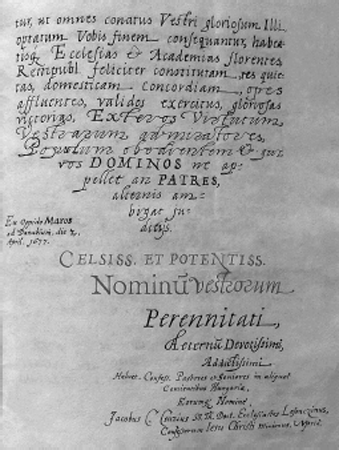 tur, ut omnes conatus Vestri gloriosum Illi
optatum Vobis finem consequantur, habea
Ecclesias et Academias florentes,
Rempubl feliciter constitutam, res quie
tas, domesticam Concordiam, opes
affluentes, validos exercitus, gloriosas
victorias, Exteros Virtutum
Vestrarum admiratores,
Populum obedientem et qui
vos DOMINOS ne ap
pellet an PATRES,
alternis am
bigat ju
dicijs.
Ex Oppido Maros
ad Danubium, die 2
April. 1677.
CELSISS. ET POTENTISS.
Nominū vestrorum
Perennitati,
Aeternū Devotissimi,
Addictissimi
Helvet. Confess. Pastores et Seniores in aliquot
Comitatibus Hungariæ,
Eorumq Nomine
Jacobus C. SS. Th. Doct. Ecclesiastes Losoncinus,
Confessorum Iesu Christi minimus. Mpria.